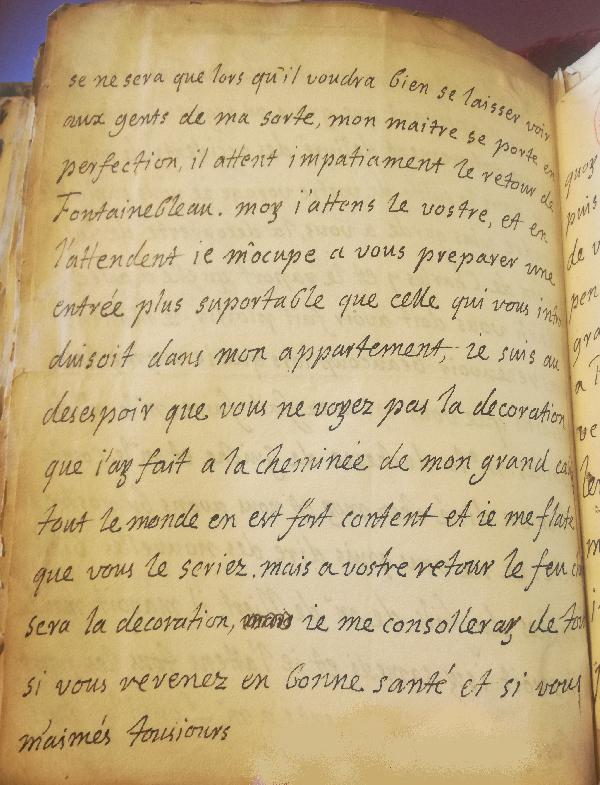 se ne sera que lors qu'il voudra bien se laisser voir
aux gents de ma sorte, mon maitre se porte en
perfection, il attent impatiament le retour de
Fontainebleau. moy i'attens le vostre, et en
l'attendent ie m'ocupe a vous preparer une
entrée plus suportable que celle qui vous intro
duisoit dans mon appartement, ie suis au
desespoir que vous ne voyez pas la decoration
que i'ay fait a la cheminée de mon grand
tout le monde en est fort content et ie me flate
que vous le seriez. mais a vostre retour le feu
sera la decoration, ie me consolleray de tout
si vous revenez en bonne santé et si vous
m'aimés tousiours